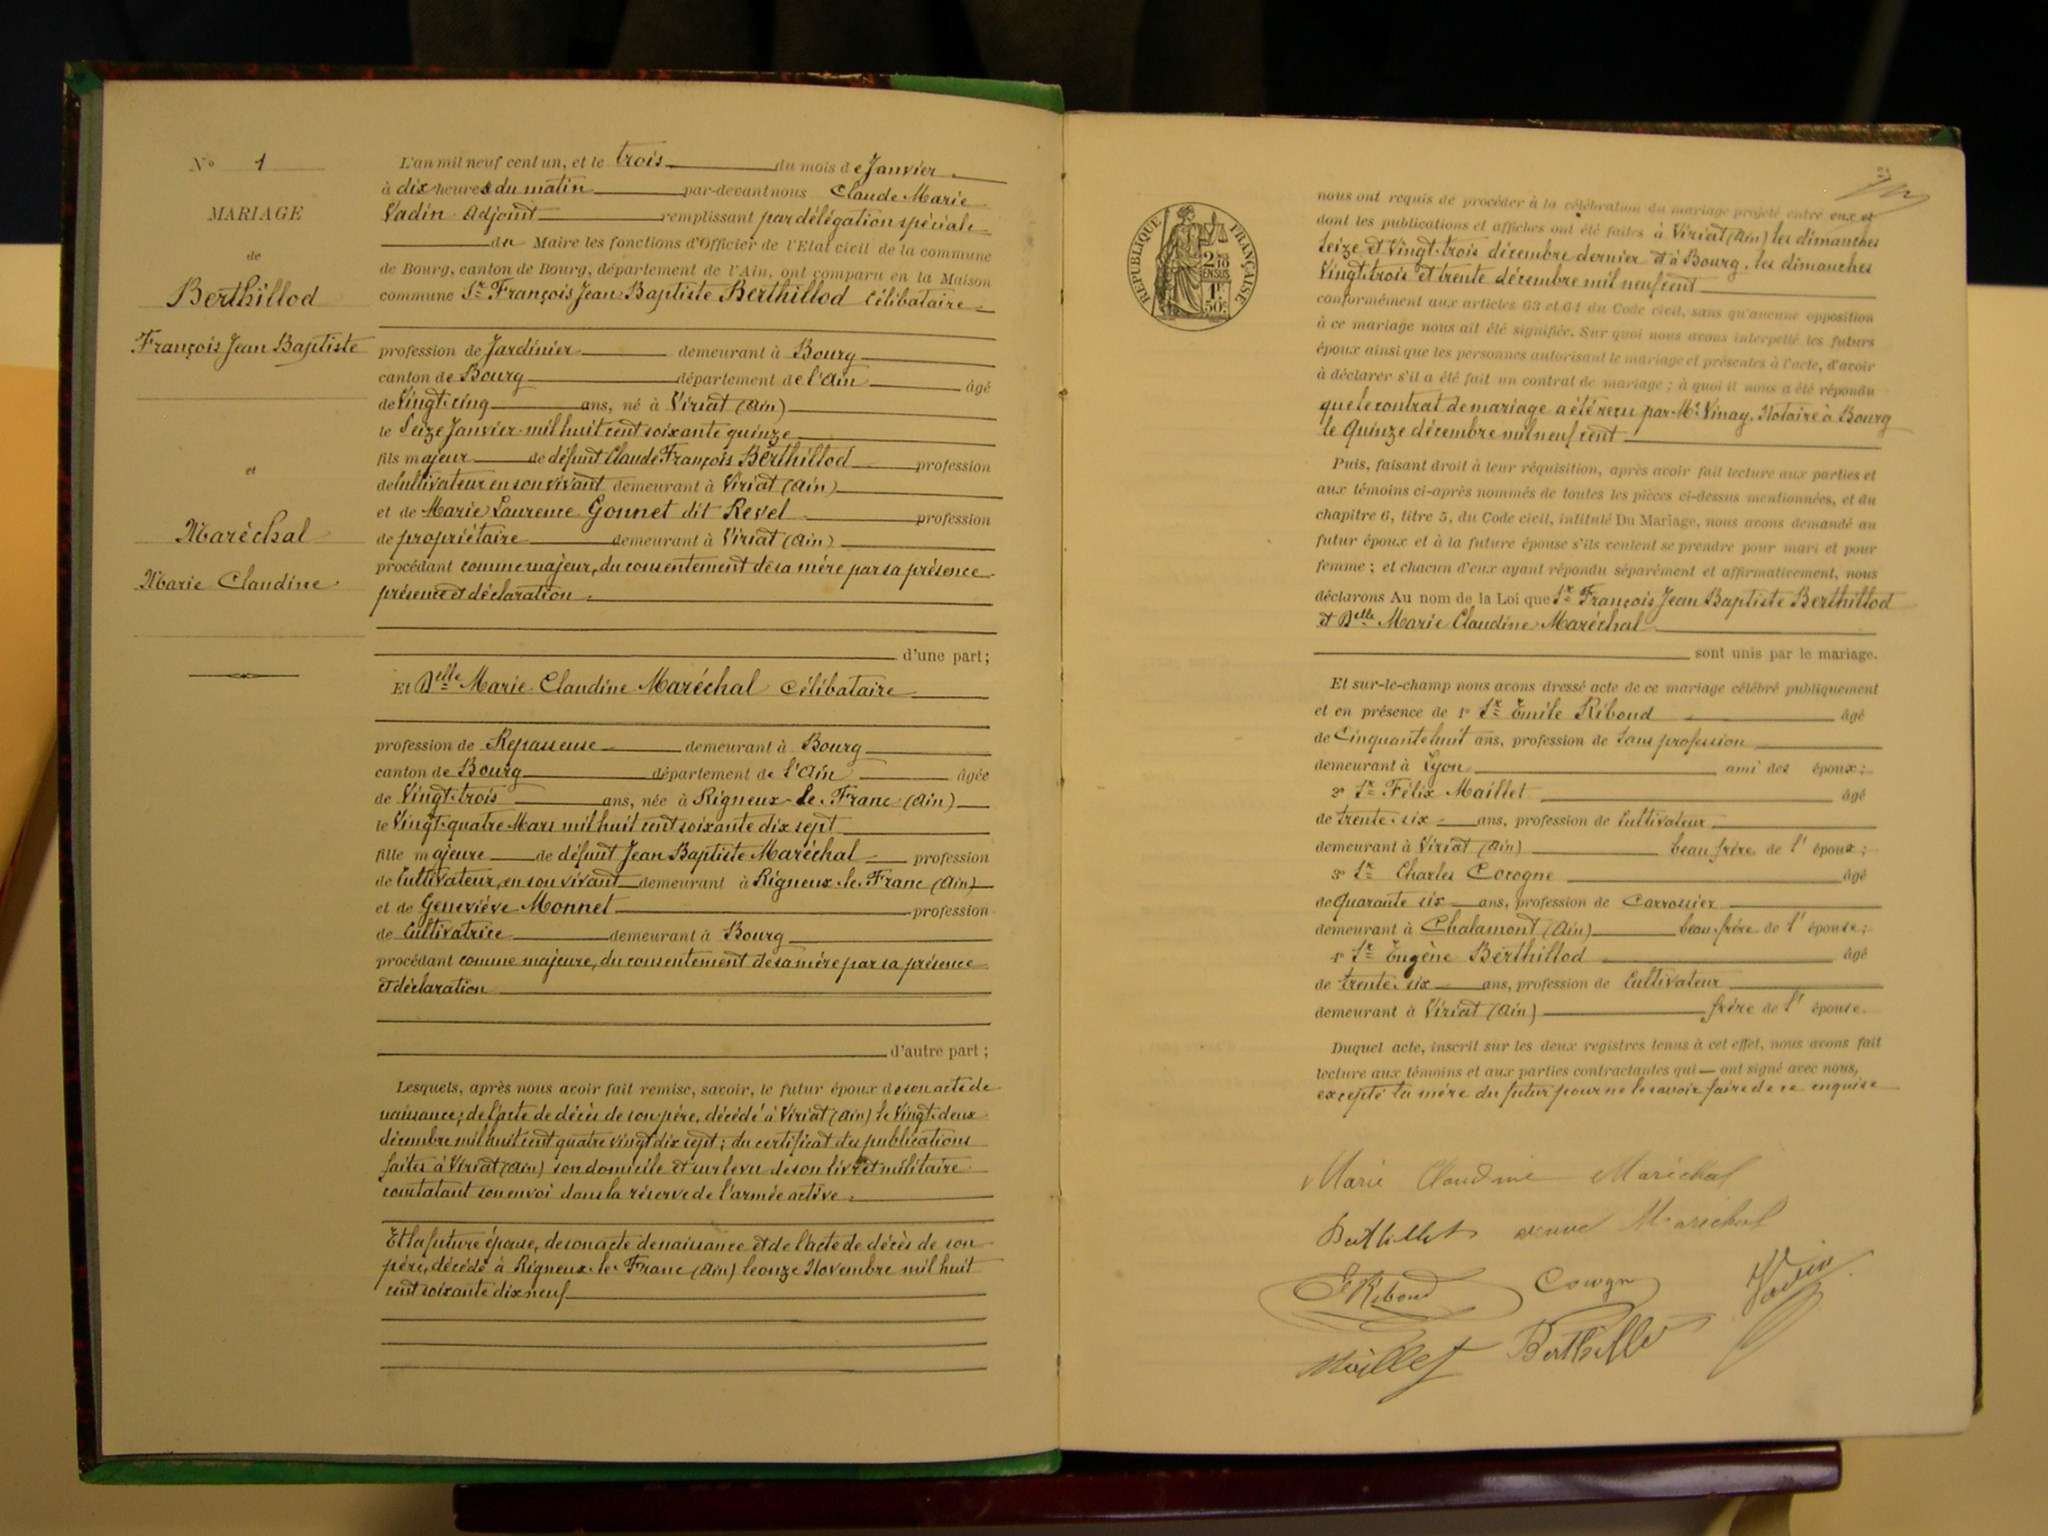 N° 1
MARIAGE
de
Berthillod
François Jean Baptiste
et
Maréchal
Marie Claudine
L'an mil neuf cent un, et le trois du mois de Janvier
à dix heures du matin par-devant nous Claude Marie
Vadin Adjoint remplissant par délégation spéciale
du Maire les fonctions d'Officier de l'Etat civil de la commune
de Bourg, canton de Bourg, département de l'Ain, ont comparu en la Maison
commune Sr François Jean Baptiste Berthillod Célibataire
profession de Jardinier demeurant à Bourg
canton de Bourg département de l'Ain âgé
de Vingt-cinq ans, né à Viriat (Ain)
le Seize Janvier mil huit cent soixante quinze
fils majeur de défunt Claude François Berthillod profession
de Cultivateur en son vivant demeurant à Viriat (Ain)
et de Marie Laurence Gonnet dit Revel profession
de propriétaire demeurant à Viriat (Ain)
procédant comme majeur, du consentement de sa mère par sa présence
présence et déclaration
d'une part;
Et Delle Marie Claudine Maréchal Célibataire
profession de Repasseuse demeurant à Bourg
canton de Bourg département de l'Ain âgée
de Vingt-trois ans, née à Rigneux-le-Franc (Ain)
le Vingt-quatre Mars mil huit cent soixante dix sept
fille majeure de défunt Jean Baptiste Maréchal profession
de Cultivateur, en son vivant demeurant à Rigneux-le-Franc (Ain)
et de Geneviève Monnet profession
de Cultivatrice demeurant à Bourg
procédant comme majeure, du consentement de sa mère par sa présence
et déclaration
d'autre part;
Lesquels, après nous avoir fait remise, savoir, le futur époux de son acte de
naissance; de l'acte de décès de son père, décédé à Viriat (Ain) le Vingt-deux
décembre mil huit cent quatre vingt dix sept; du certificat des publications
faites à Viriat (Ain) son domicile et sur le vu de son livret militaire
constatant son envoi dans la réserve de l'armée active.
Et la future épouse, de son acte de naissance et de l'acte de décès de son
père, décédé à Rigneux-le-Franc (Ain) le onze Novembre mil huit
cent soixante dix neuf
RÉPUBLIQUE FRANÇAISE
2/10 EN SUS
1F 50c
nous ont requis de procéder à la célébration du mariage projeté entre eux et
dont les publications et affiches ont été faites à Viriat (Ain) les dimanches
Seize et Vingt-trois décembre dernier et à Bourg, les dimanches
Vingt-trois et trente décembre mil neuf cent
conformément aux articles 63 et 64 du Code civil, sans qu'aucune opposition
à ce mariage nous ait été signifiée. Sur quoi nous avons interpellé les futurs
époux ainsi que les personnes autorisant le mariage et présentes à l'acte, d'avoir
à déclarer s'il a été fait un contrat de mariage; à quoi il nous a été répondu
que le contrat de mariage a été reçu par Me Vinay, Notaire à Bourg
le Quinze décembre mil neuf cent
Puis, faisant droit à leur réquisition, après avoir fait lecture aux parties et
aux témoins ci-après nommés de toutes les pièces ci-dessus mentionnées, et du
chapitre 6, titre 5, du Code civil, intitulé Du Mariage, nous avons demandé au
futur époux et à la future épouse s'ils veulent se prendre pour mari et pour
femme; et chacun d'eux ayant répondu séparément et affirmativement, nous
déclarons Au nom de la Loi que Sr François Jean Baptiste Berthillod
et Delle Marie Claudine Maréchal
sont unis par le mariage.
Et sur-le-champ nous avons dressé acte de ce mariage célébré publiquement
et en présence de 1° Sr Émile Riboud âgé
de Cinquante huit ans, profession de Sans profession
demeurant à Lyon ami des époux;
2° Sr Félix Maillet âgé
de trente-six ans, profession de Cultivateur
demeurant à Viriat (Ain) beau frère de l'époux;
3° Sr Charles Cocogne âgé
de Quarante six ans, profession de Carrossier
demeurant à Chalamont (Ain) beau-frère de l'épouse;
4° Sr Eugène Berthillod âgé
de trente-six ans, profession de Cultivateur
demeurant à Viriat (Ain) frère de l'épouse.
Duquel acte, inscrit sur les deux registres tenus à cet effet, nous avons fait
lecture aux témoins et aux parties contractantes qui ont signé avec nous,
excepté la mère du futur pour ne le savoir faire de ce enquise
Marie Claudine Maréchal
Berthillod veuve Maréchal
E Riboud Cocogne Vadin
Maillet Berthillod